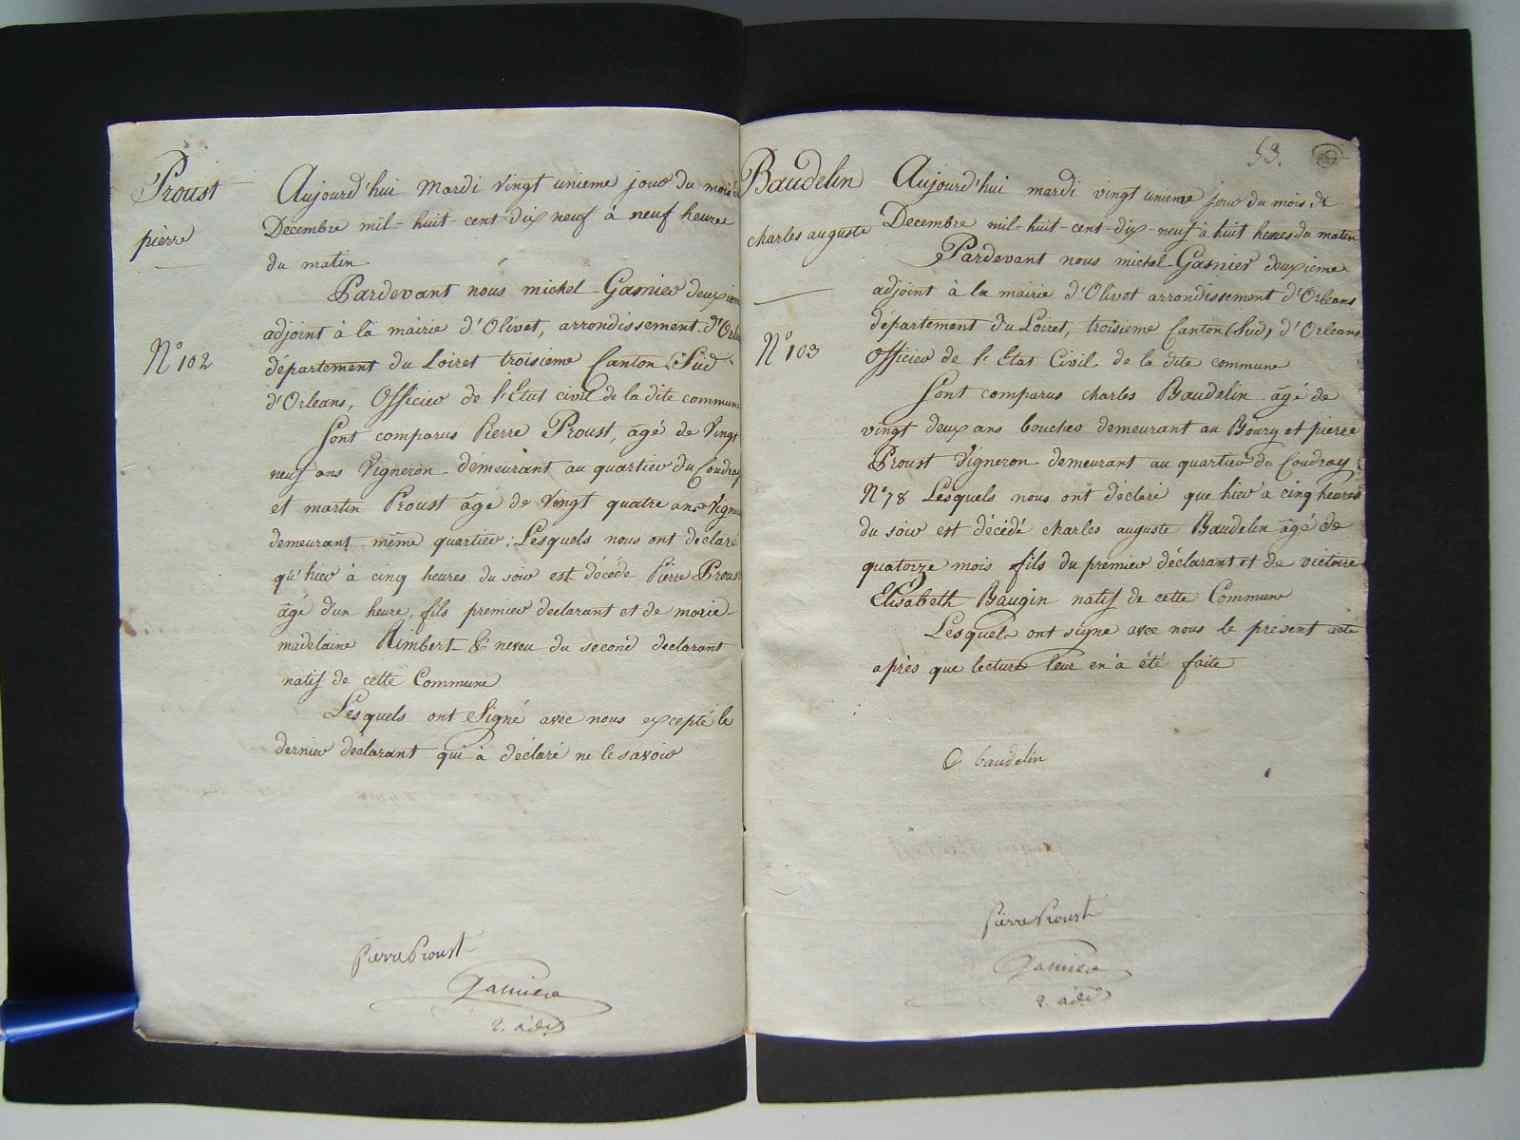 Proust
pierre
N° 102
Aujourd'hui Mardi vingt unieme jour du mois de
Decembre mil-huit-cent-dix neuf à neuf heure
du matin
Pardevant nous michel Gasnier deuxieme
adjoint à la mairie d'Olivet, arrondissement d'Orle
département du Loiret troisieme Canton (Sud
d'Orleans, Officier de l'Etat civil de la dite commune
Sont comparus Pierre Proust, âgé de Vingt
neuf ans Vigneron demeurant au quartier du Coudray
et martin Proust âgé de Vingt quatre ans Vigne
demeurant même quartier; Lesquels nous ont déclaré
qu'hier à cinq heures du soir est décédé Pierre Proust
âgé d'un heure, fils premier declarant et de marie
madelaine Rimbert & neveu du second declarant
natif de cette Commune
Lesquels ont Signé avec nous excepté le
dernier declarant qui à déclaré ne le savoir
Pierre Proust
Gasnier
2. adj
53.
Baudelin
charles auguste
N° 103
Aujourd'hui mardi vingt unieme jour du mois de
Decembre mil-huit-cent-dix-neuf à huit heures du matin
Pardevant nous michel Gasnier deuxieme
adjoint à la mairie d'Olivet arrondissement d'Orleans
département du Loiret, troisieme Canton (Sud) d'Orleans
Officier de l'Etat Civil de la dite commune
Sont comparus charles Baudelin âgé de
vingt deux ans boucher demeurant au Bourg et pierre
Proust Vigneron demeurant au quartier du Coudray
N° 78 Lesquels nous ont déclaré que hier à cinq heures
du soir est décédé charles auguste Baudelin âgé de
quatorze mois fils du premier déclarant et de victoire
Elisabeth Baugin natif de cette Commune
Lesquels ont signé avec nous le present acte
après que lecture leur en à été faite
C baudelin
Pierre Proust
Gasnier
2. adj